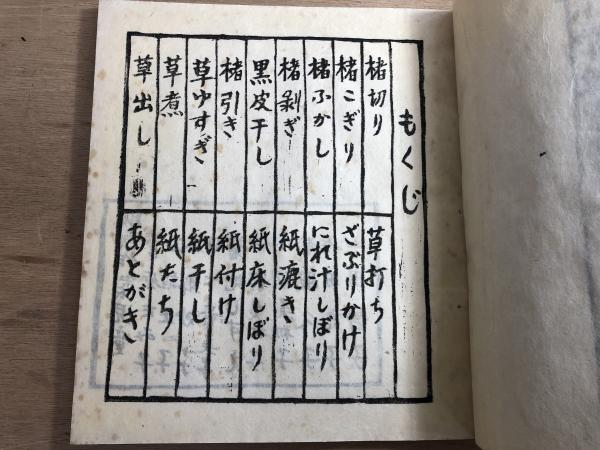 もくじ
楮切り
楮こぎり
楮ふかし
楮剥ぎ
黒皮干し
楮引き
草ゆすぎ
草煮
草出し
草打ち
ざぶりかけ
にれ汁しぼり
紙漉き
紙床しぼり
紙付け
紙干し
紙たち
あとがき